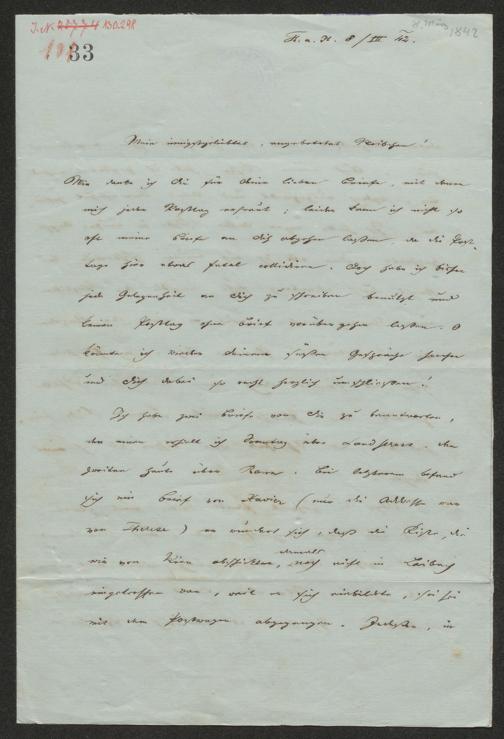 I.N. 130.298
33
8. März 1842
K. a. H. 8/III 42.
Mein innigstgeliebtes, angebetetes Weibchen!
Wie danke ich Dir für Deine lieben Briefe, mit denen
mich jeder Posttag erfreut; leider kann ich nicht so
oft meine Briefe an Dich abgehen lassen, da die Post-
tage hier etwas fatal collidiren. Doch habe ich bisher
jede Gelegenheit an Dich zu schreiben benützt und
keinen Posttag ohne Brief vorübergehen lassen. O
könnte ich wieder Deinem süßen Gespräche horchen
und Dich dabei so recht herzlich umschließen!
Ich habe zwei Briefe von Dir zu beantworten,
den einen erhielt ich Sonntag über Landstrass, den
zweiten heute über Rann. Bei letzterem befand
sich ein Brief von Xavier (nur die Addresse war
von Therese) er wundert sich, daß die Kiste, die
wir von Wien abschickten, damals noch nicht in Laibach
eingetroffen war, weil er sich einbildete, sie sei
mit dem Postwagen abgegangen. Indessen, in